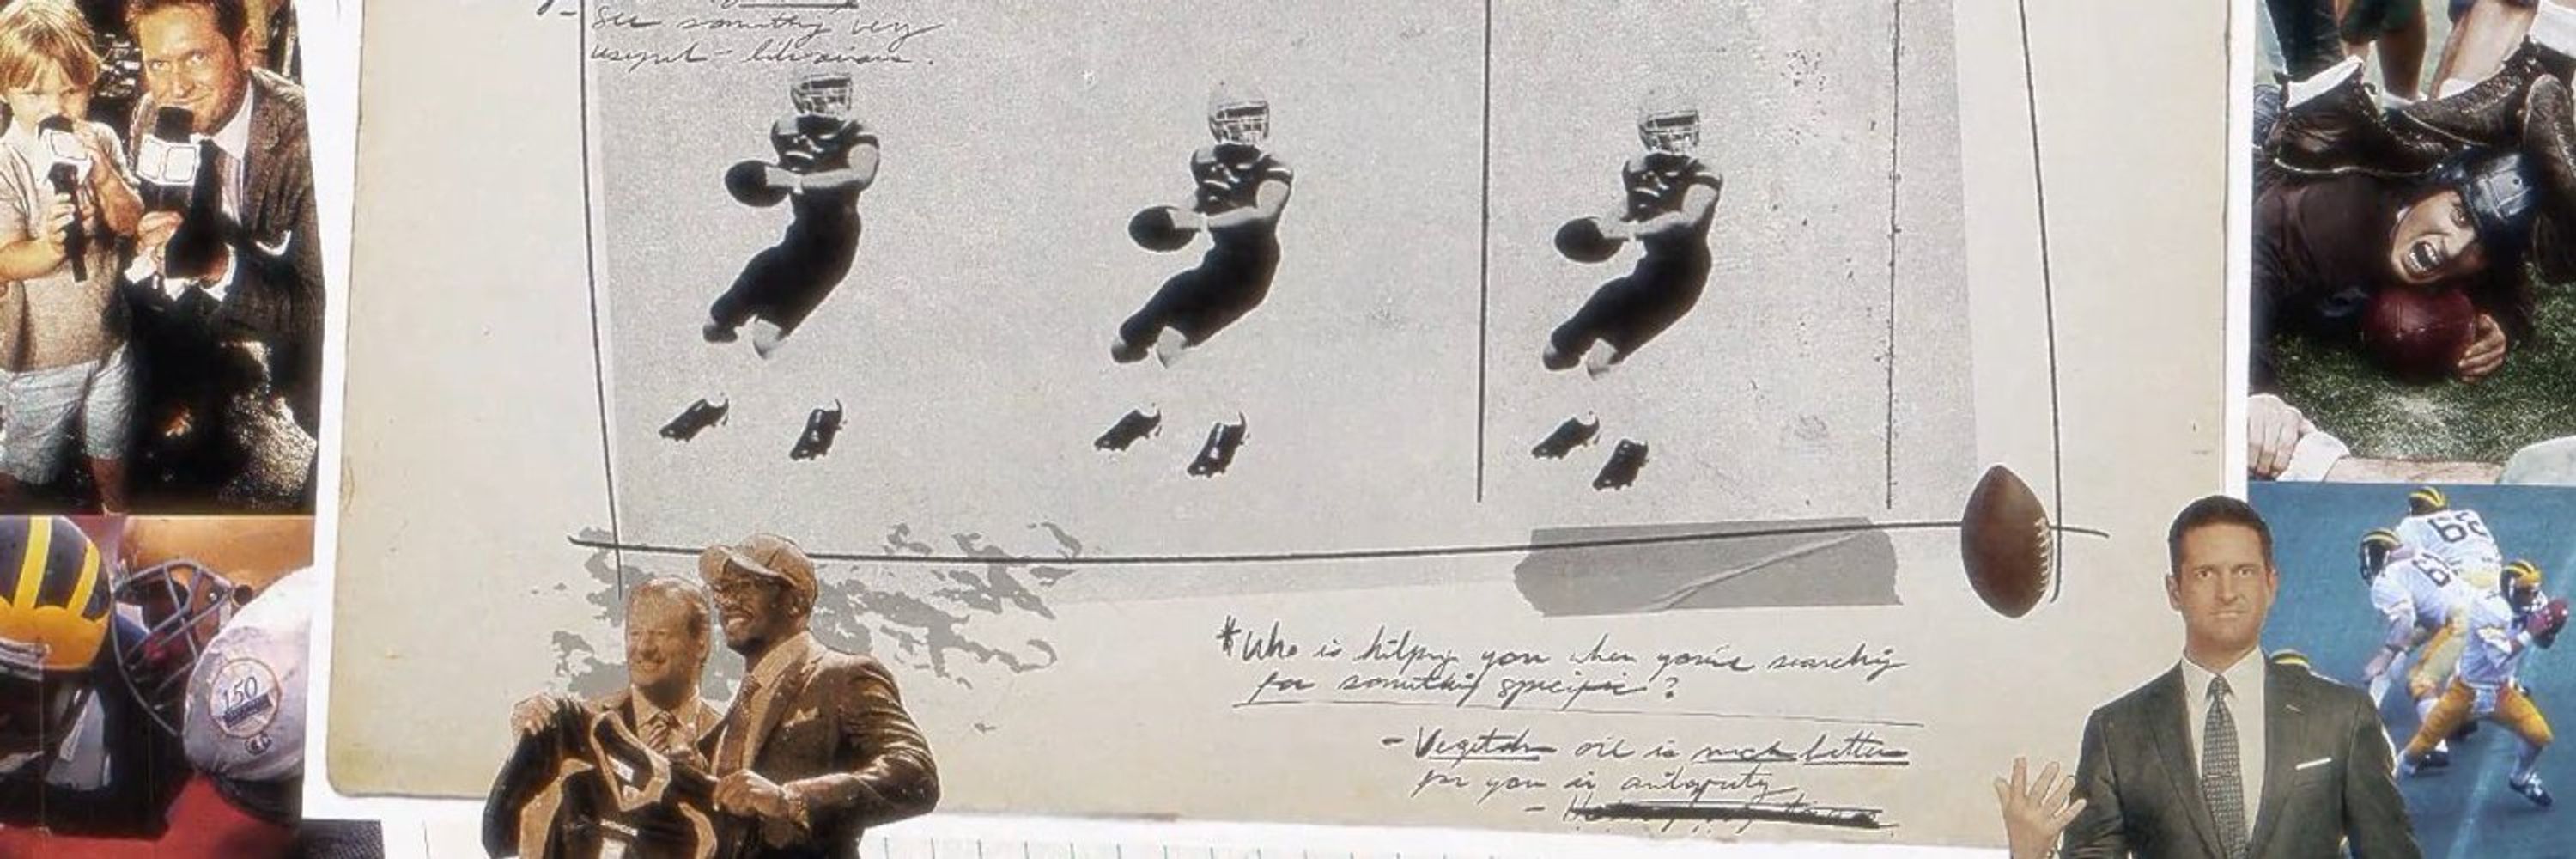 see somethig very
useful -
*Who is hilpig you when you're searchig
for somethig specific?
- Vegetable oil is much better
for you in
-
150
BRONCOS
62